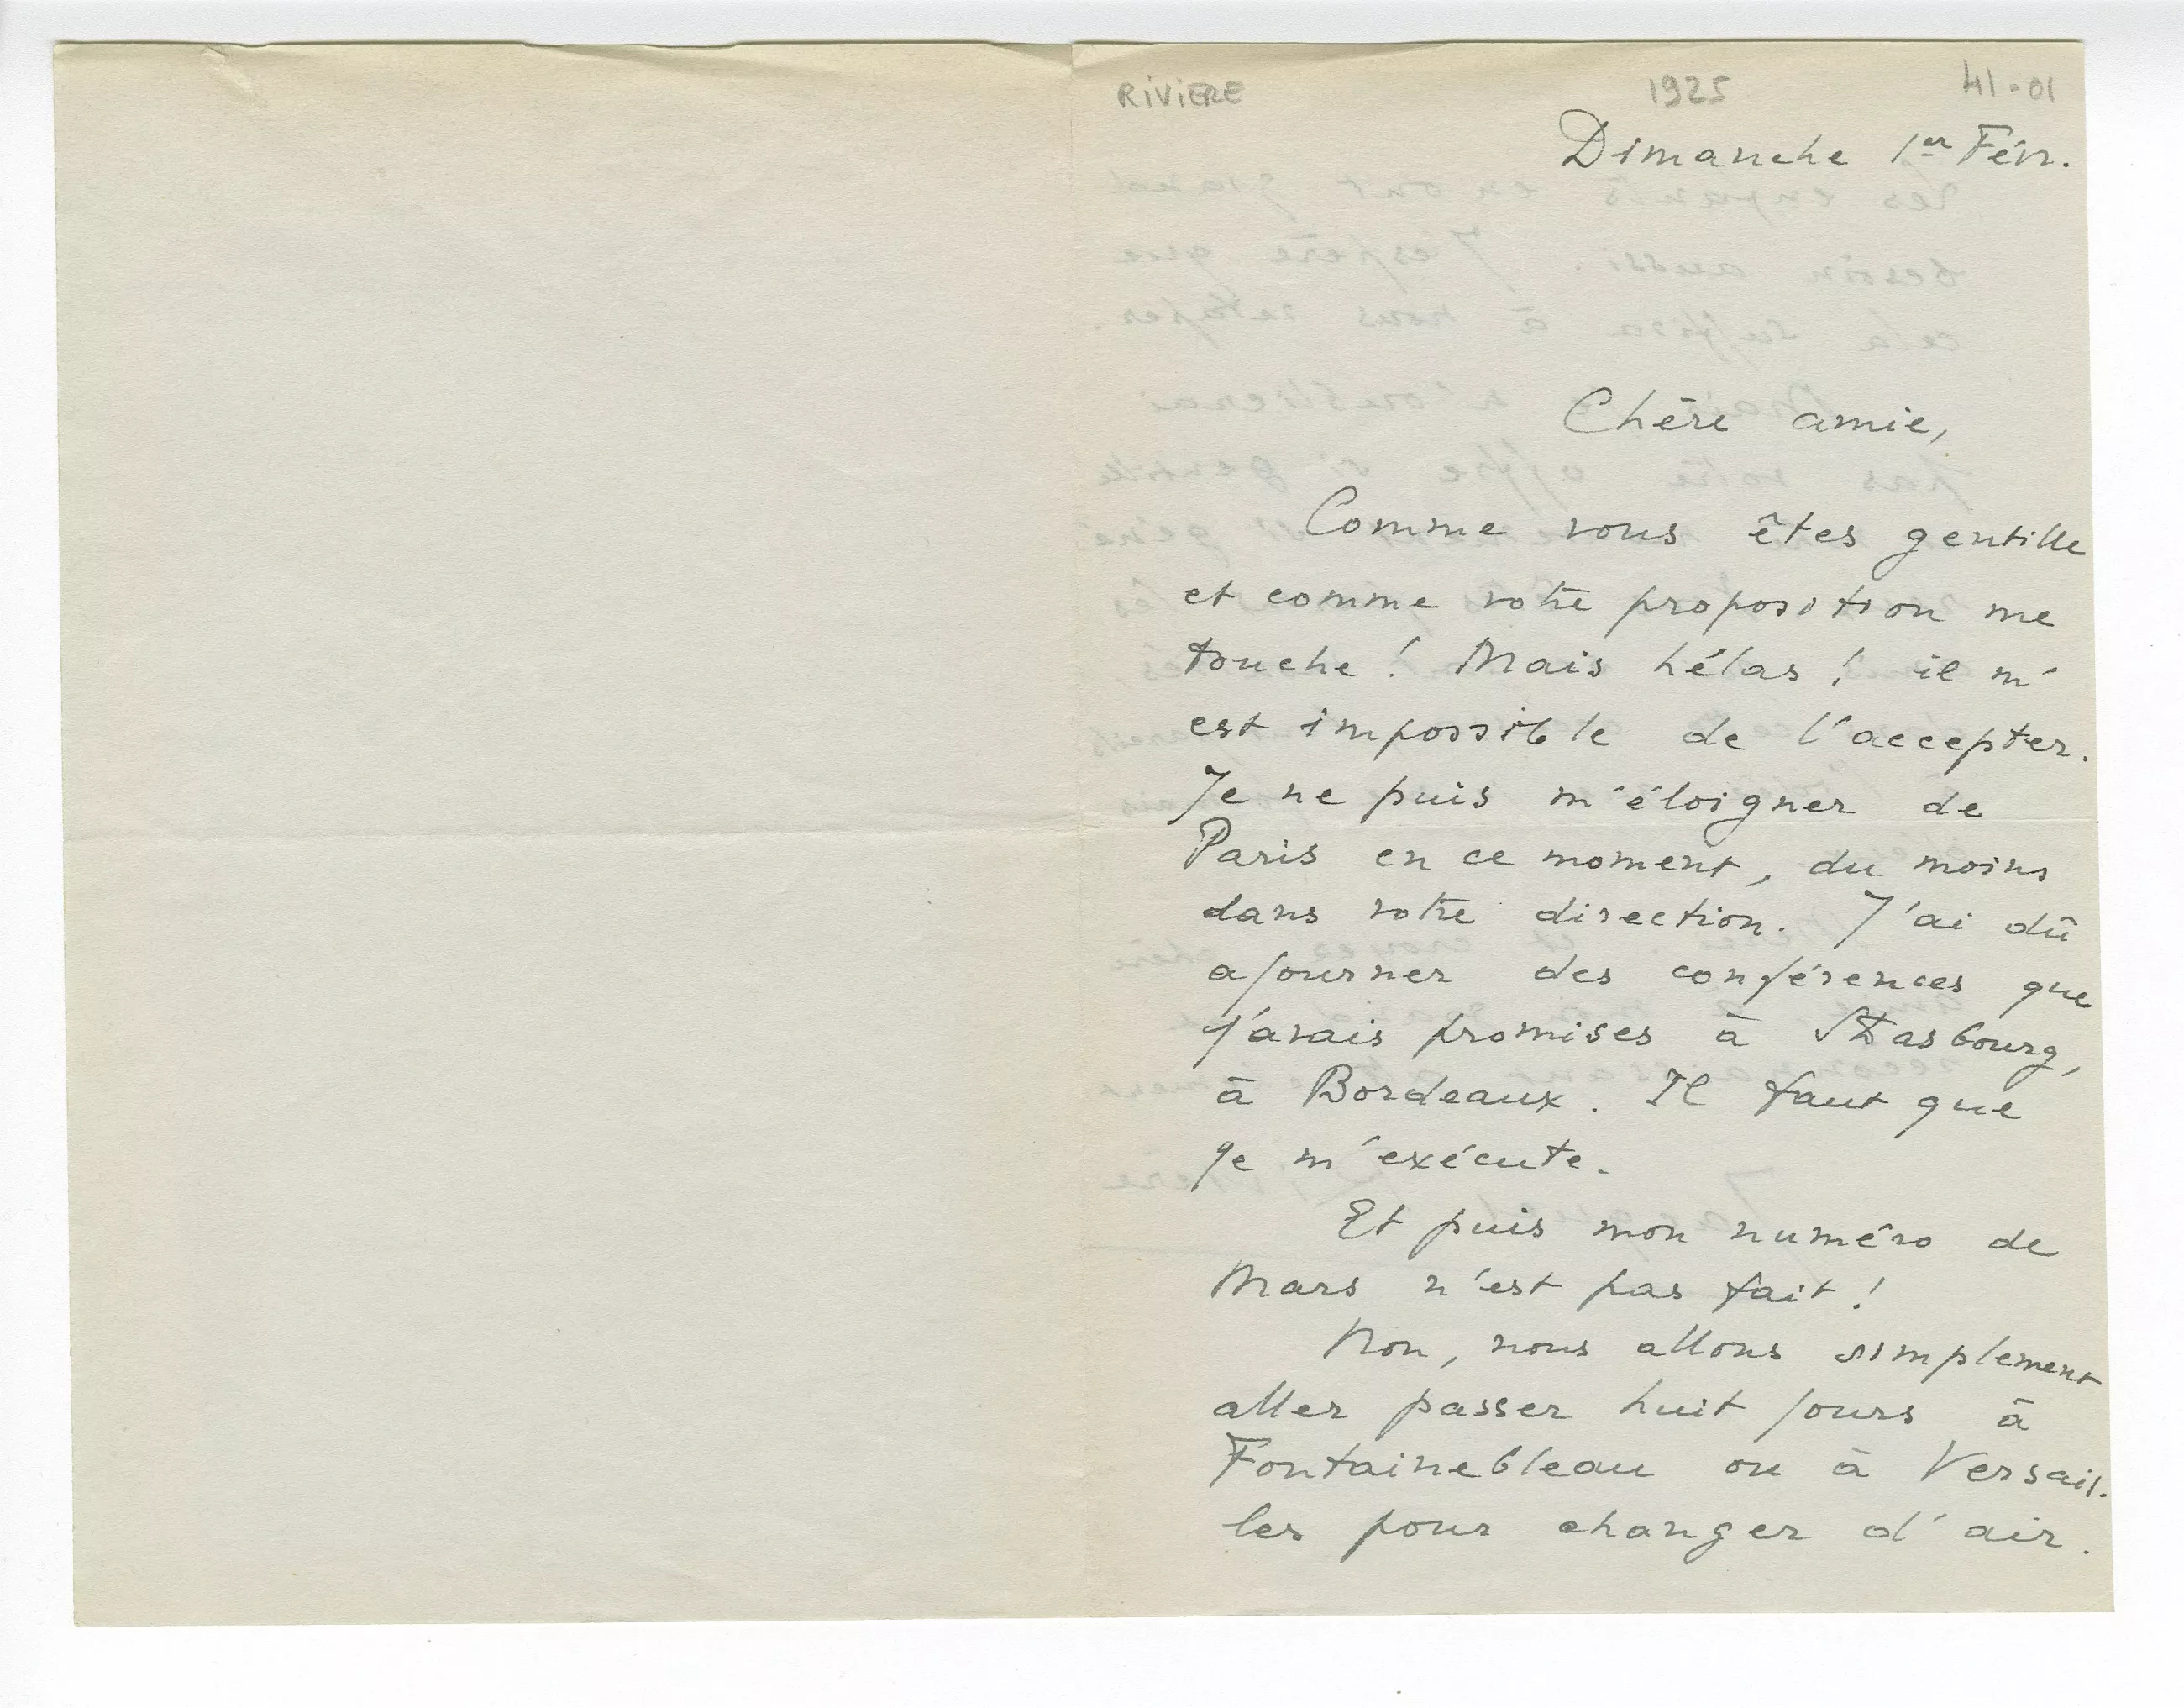 RIVIERE 1925 41-01
Dimanche 1er Févr.
Chère amie,
Comme vous êtes gentille
et comme votre proposition me
touche ! Mais hélas ! il m'
est impossible de l'accepter.
Je ne puis m'éloigner de
Paris en ce moment, du moins
dans votre direction. J'ai dû
ajourner des conférences que
j'avais promises à Strasbourg,
à Bordeaux. Il faut que
je m'exécute.
Et puis mon numéro de
Mars n'est pas fait !
Non, nous allons simplement
aller passer huit jours à
Fontainebleau ou à Versail-
les pour changer d'air.